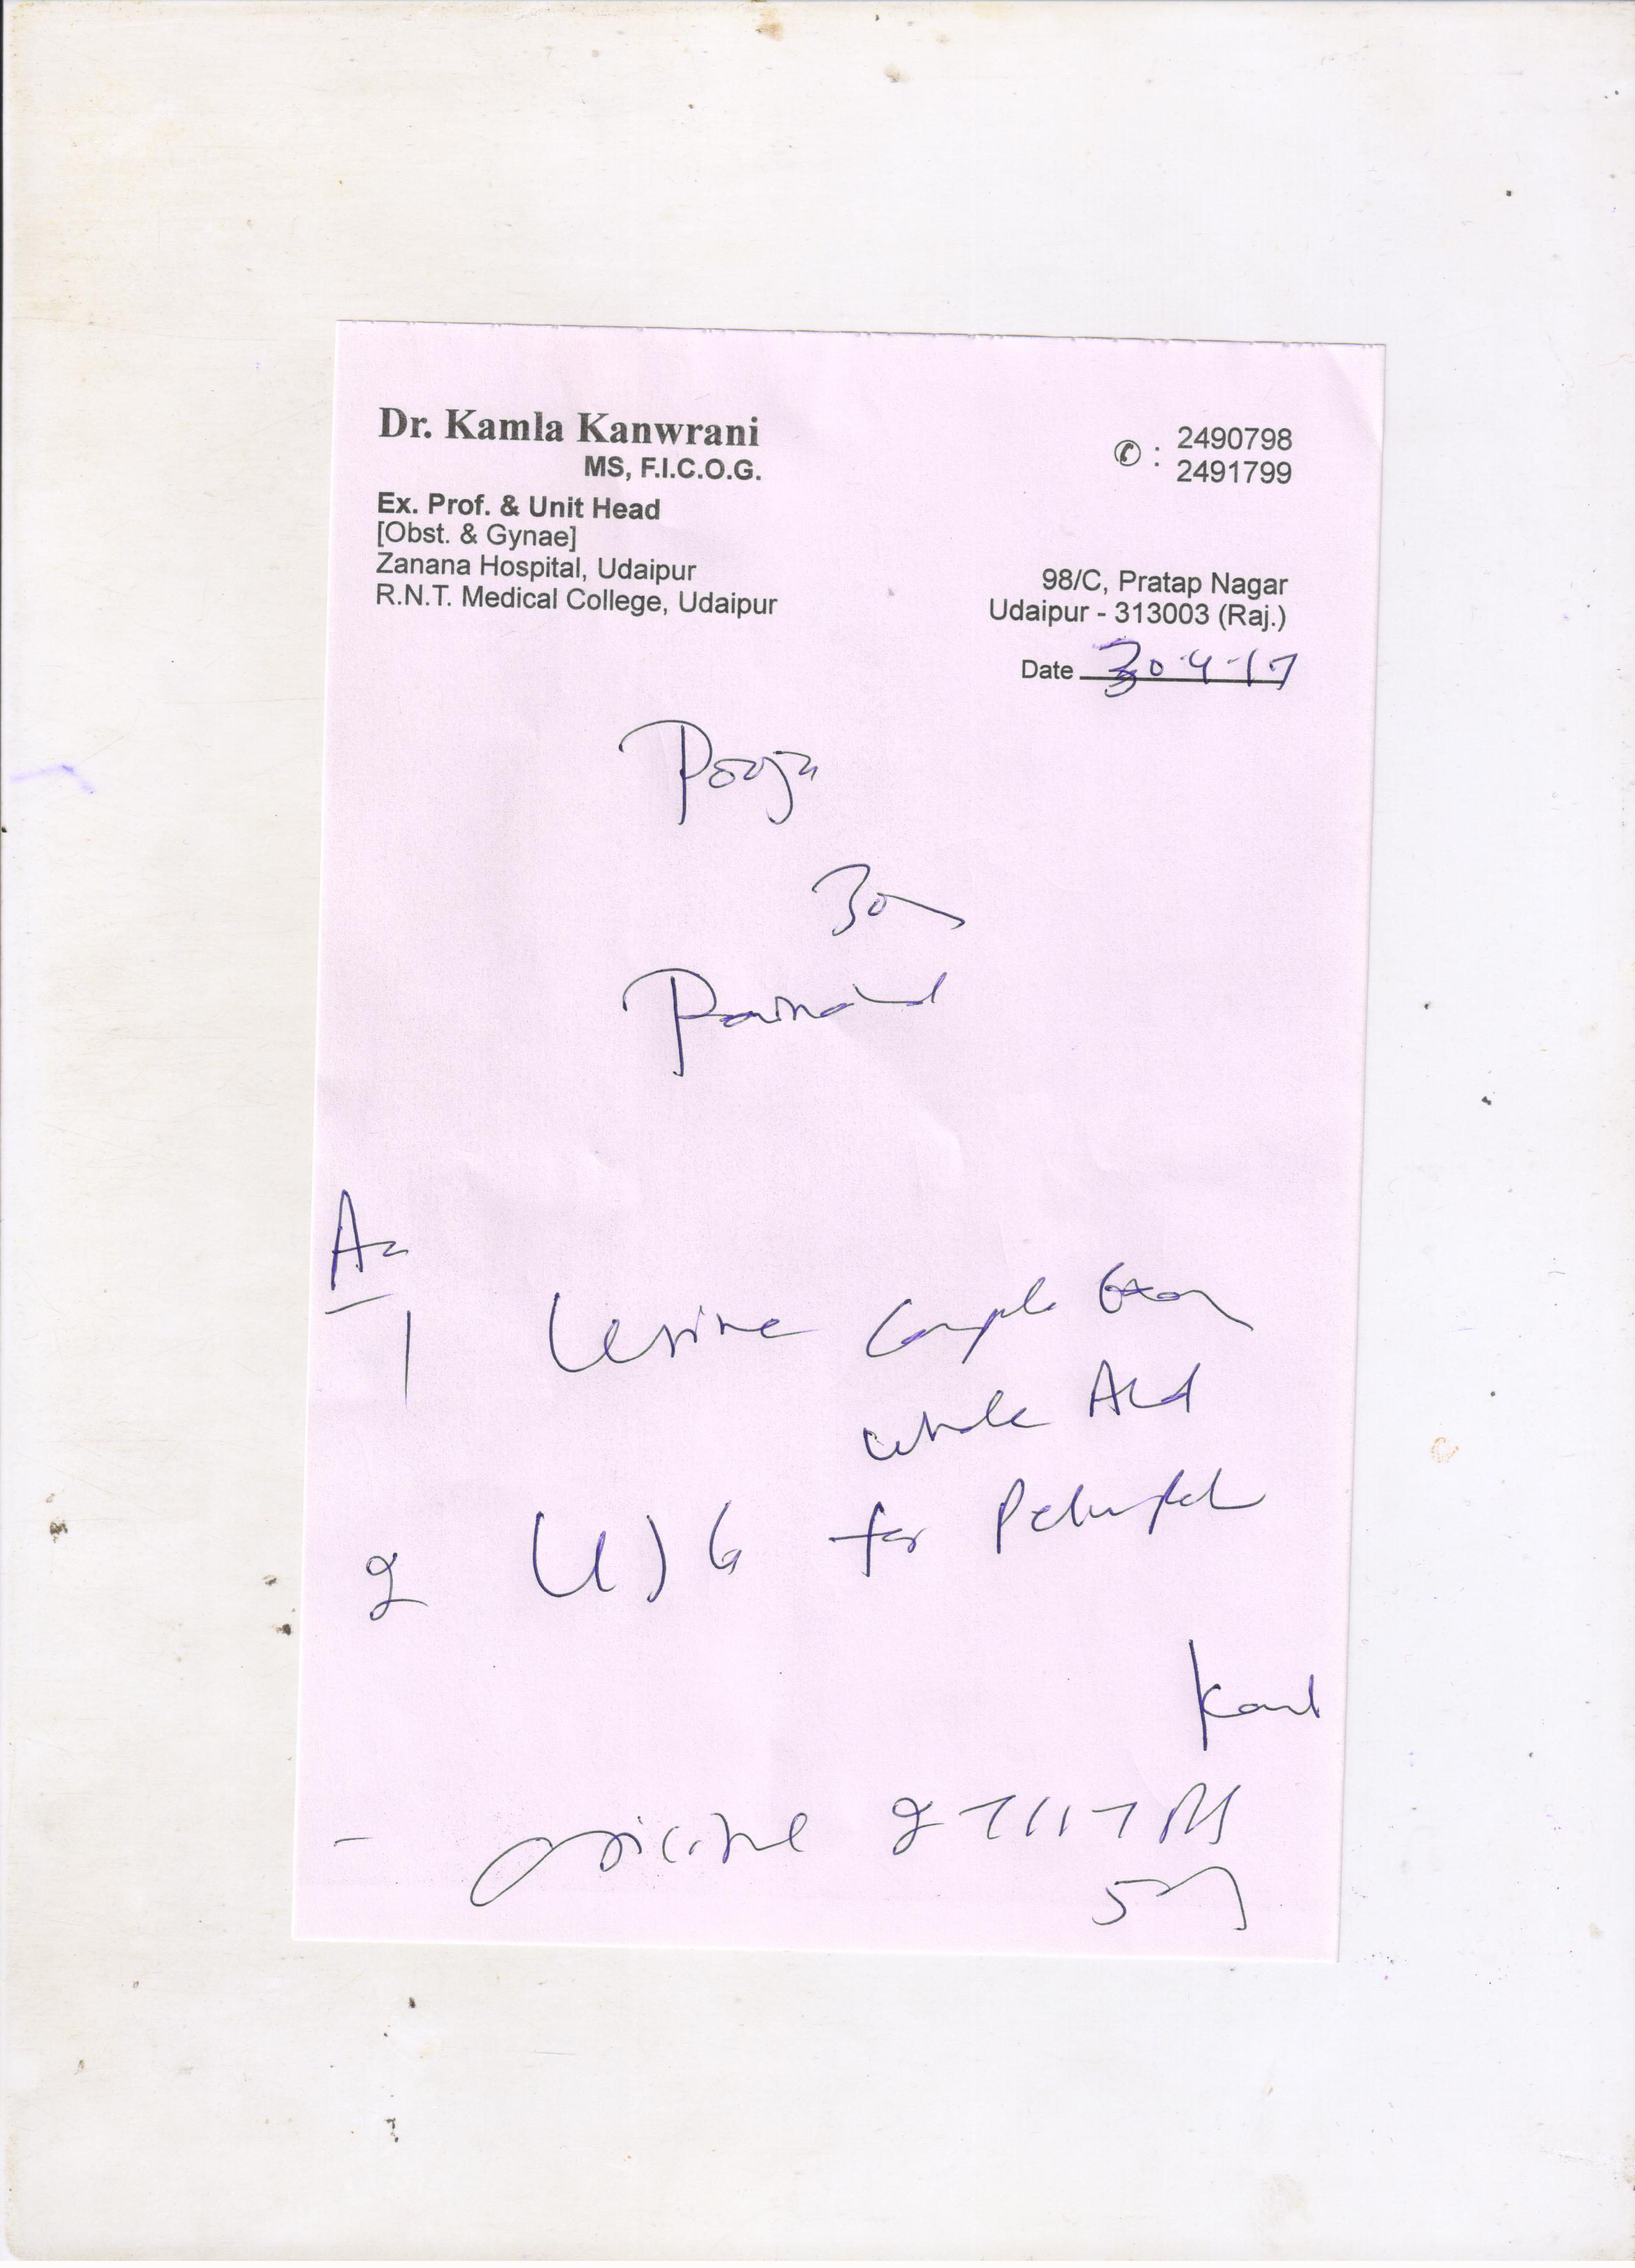 Dr. Kamla Kanwrani
MS, F.I.C.O.G.
Ex. Prof. & Unit Head
[Obst. & Gynae]
Zanana Hospital, Udaipur
R.N.T. Medical College, Udaipur
✆ : 2490798
2491799
98/C, Pratap Nagar
Udaipur - 313003 (Raj.)
Date 30-4-17
Pooja
30
1 Urine Complete Exam
whole Abd
2 USG for